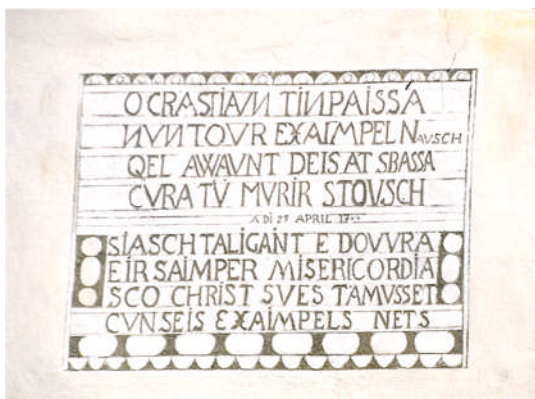 O CRASTIAUN TINPAISSÁ
NUNTOUR EXAIMPEL NAUSCH
QEL AVVAUNT DEIS AT SBASSA
CURA TÜ MURIR STOUSCH
A DI 29 APRIL
SIASCH TALIGANT E DOVVRA
EIR SAIMPER MISERICORDIA
SCO CHRIST SUES T'AMUSSET
CUN SEIS EXAIMPELS NETS